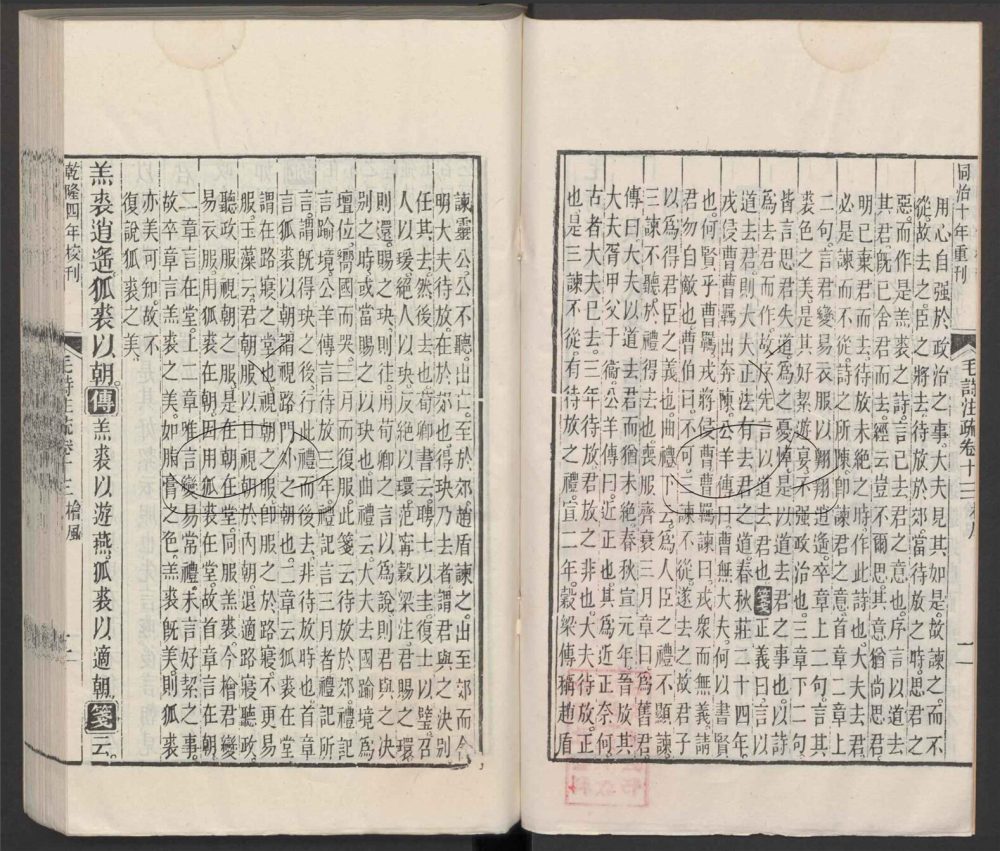 同治十年重刊 毛詩注疏卷十三
用心自强於政治之事大夫見其如是故諫之而不
從故去之臣之將去待放於郊當待放之時思君之
惡而作是羔裘之詩言已去君之意也序言以道去
其君既已舍君而去經云豈不爾思其意猶尚思君
明已棄君而去待放未絕之時作此詩也大夫去君
必是諫而不從詩之所陳卽諫君之意首章二章上
二句言君變易衣服以翱翔逍遙卒章上二句言其
裘色之美是其好絜遊宴不强政治也三章下二句
皆言思君失道爲之憂悼是以道去君之事也以詩
爲去君而作故序先言以道去君也箋正義曰言以
道去君則大夫正法有去君之道春秋莊二十四年
戎侵曹曹羈出奔陳公羊傳曰曹無大夫何以書賢
也何賢乎曹羈戎將侵曹曹羈諫曰戎衆而無義請
君勿自敵也曹伯曰不可三諫不從遂去之故君子
以爲得君臣之義也曲禮下云爲人臣之禮不顯諫
三諫不聽於禮得去也喪服齊衰三月章曰爲舊君
傳曰大夫以道去君而猶未絕春秋宣元年晉放其
大夫胥甲父于衞公羊傳曰近正也其爲近正奈何
古者大夫已去三年待放君放之非也大夫待放正
也是三諫不從有待放之禮宣二年穀梁傳稱趙盾
諫靈公公不聽出亡至於郊趙盾諫之出至郊而舍
明大夫待放在於郊也得玦乃去者謂君與之決別
任其去然後去也荀卿書云聘士以圭復士以璧召
人以瑗絕人以玦反絕以環范寗穀梁注君賜之環
則還賜之玦則往用荀卿之言以爲說則君與之決
別之時或當賜之以玦也曲禮云大夫去國踰境爲
壇位嚮國而哭三月而復服此箋云待放於郊禮記
言踰境公羊傳言待放三年禮記言三月者禮記所
言謂既得玦之後行此禮而後去非待放時也首章
言狐裘以朝謂視路門外之朝也二章云狐裘在堂
謂在路寢之堂也視朝之服卽服之於路寢不更易
服玉藻云君朝服以日視朝於內朝退適路寢聽政
聽政服視朝之服是在朝在堂同服羔裘今檜君變
易衣服用狐裘在朝因用狐裘在堂故首章言在朝
二章言在堂上二章唯言變易常禮未言好絜之事
故卒章言羔裘之美如脂膏之色羔裘既美則狐裘
亦美可知故不
復說狐裘之美
羔裘逍遙狐裘以朝傳羔裘以遊燕狐裘以適朝箋云
乾隆四年校刊 毛詩注疏卷十三 檜風